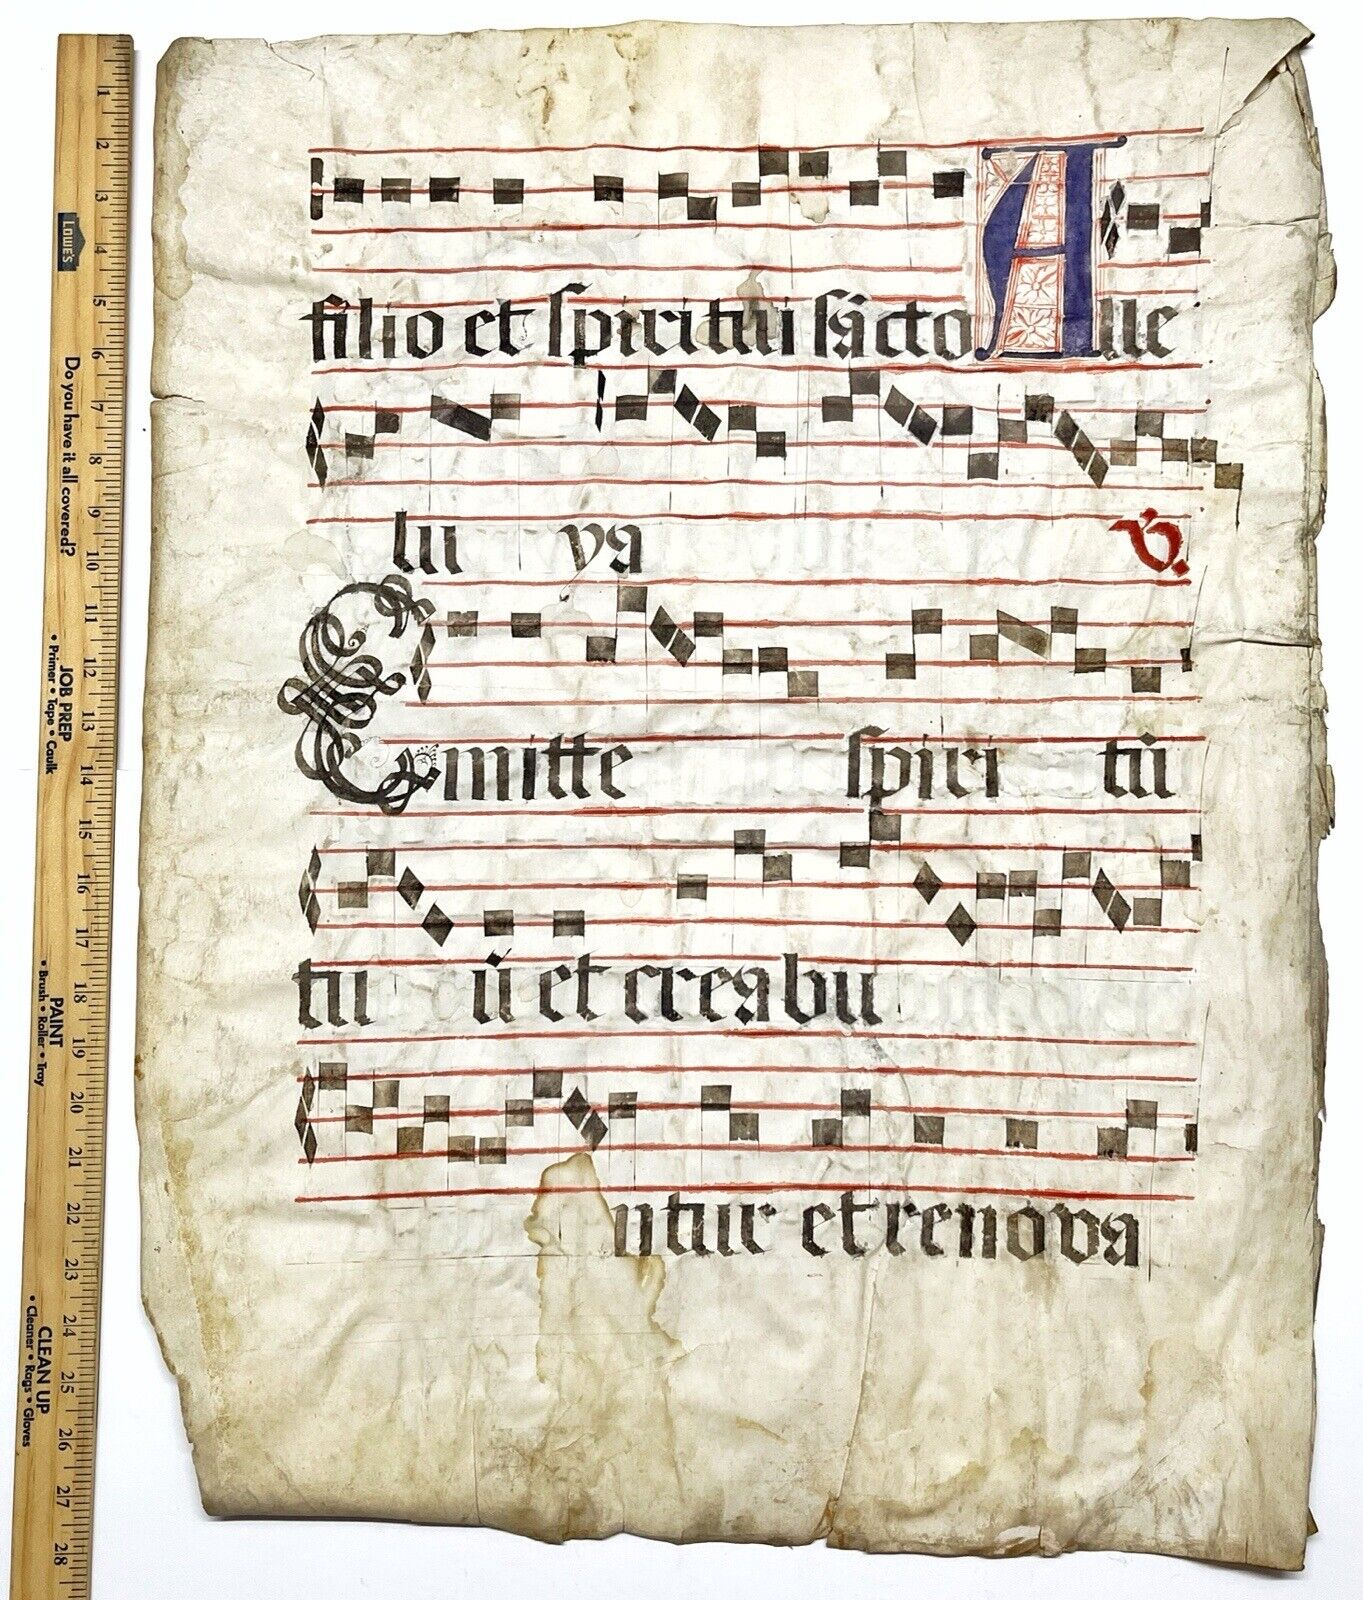 filio et spiritui sācto Alle
lu ya V.
Emitte spiri tū
tu ū et creabu
ntur et renova
LOWE'S
Do you have it all covered?
JOB PREP
• Primer • Tape • Caulk
PAINT
• Brush • Roller • Tray
CLEAN UP
• Cleaner • Rags • Gloves
1 2 3 4 5 6 7 8 9 10 11 12 13 14 15 16 17 18 19 20 21 22 23 24 25 26 27 28